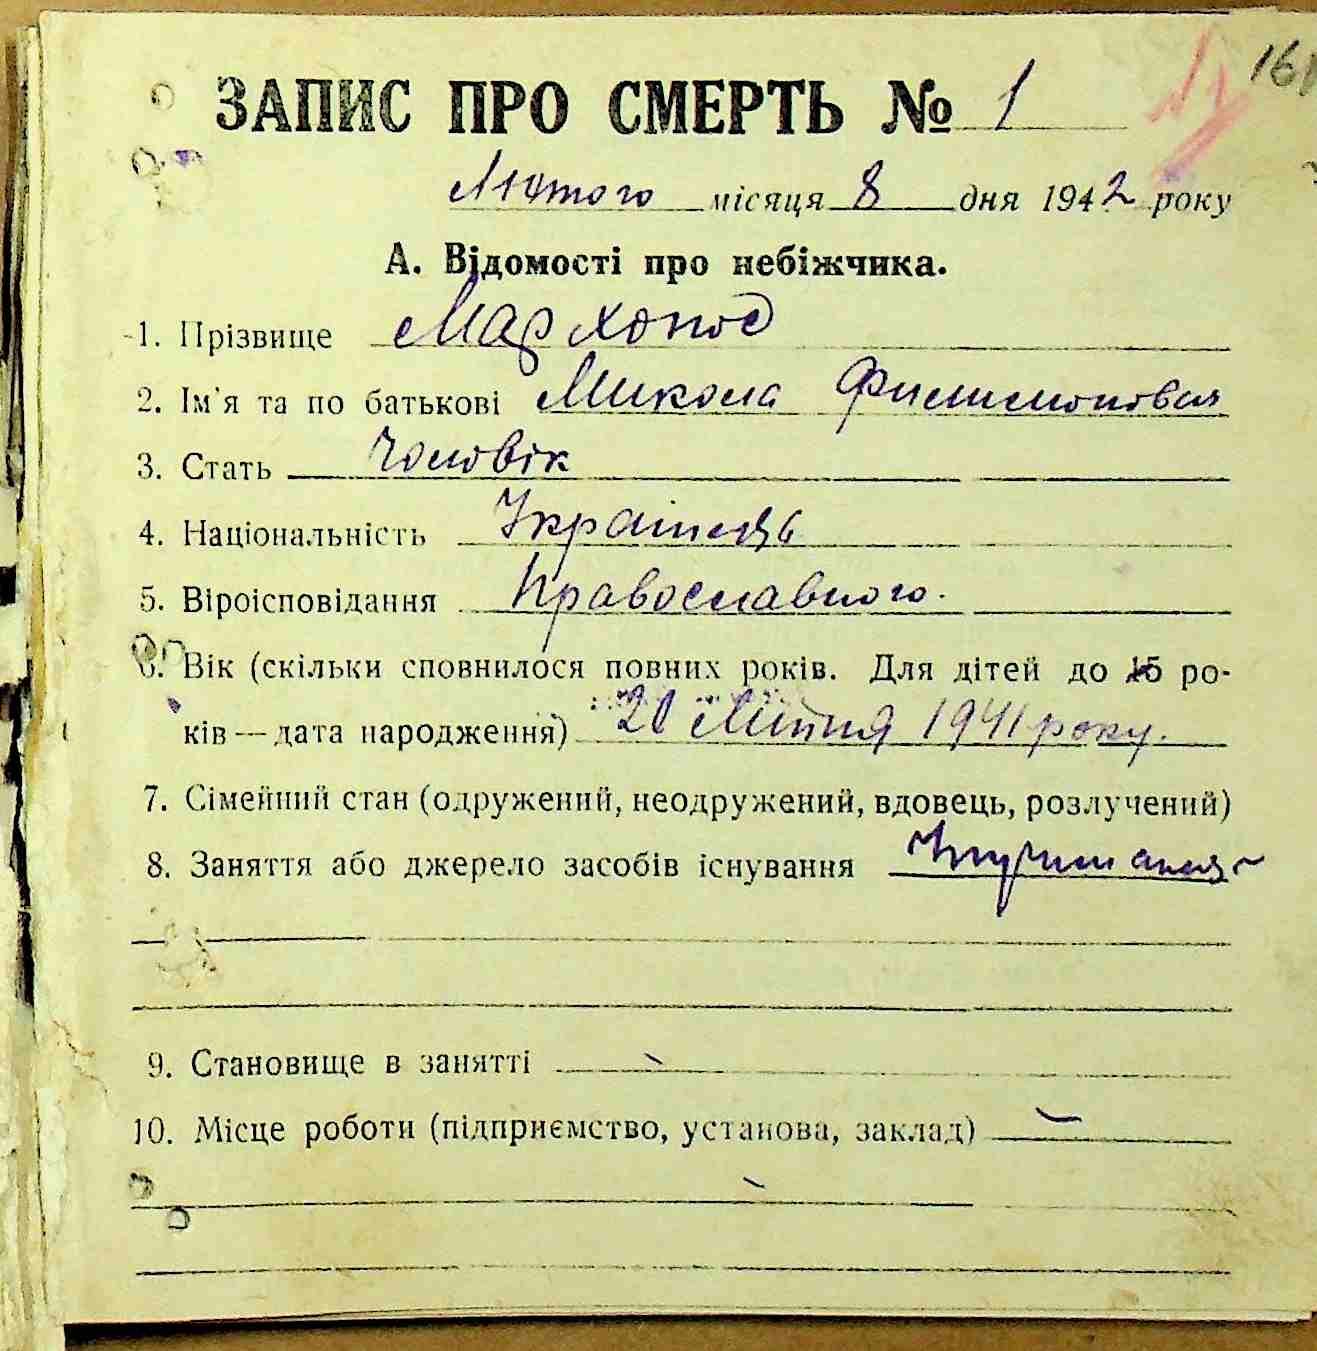 161
ЗАПИС ПРО СМЕРТЬ № 1
Лютого місяця 8 дня 1942 року
А. Відомості про небіжчика.
1. Прізвище
2. Ім'я та по батькові Микола Филимонович
3. Стать Чоловік
4. Національність Українець
5. Віроісповідання Православного.
6. Вік (скільки сповнилося повних років. Для дітей до 15 ро-
ків — дата народження) 20 Липня 1941 року.
7. Сімейний стан (одружений, неодружений, вдовець, розлучений)
8. Заняття або джерело засобів існування
9. Становище в занятті
10. Місце роботи (підприємство, установа, заклад)